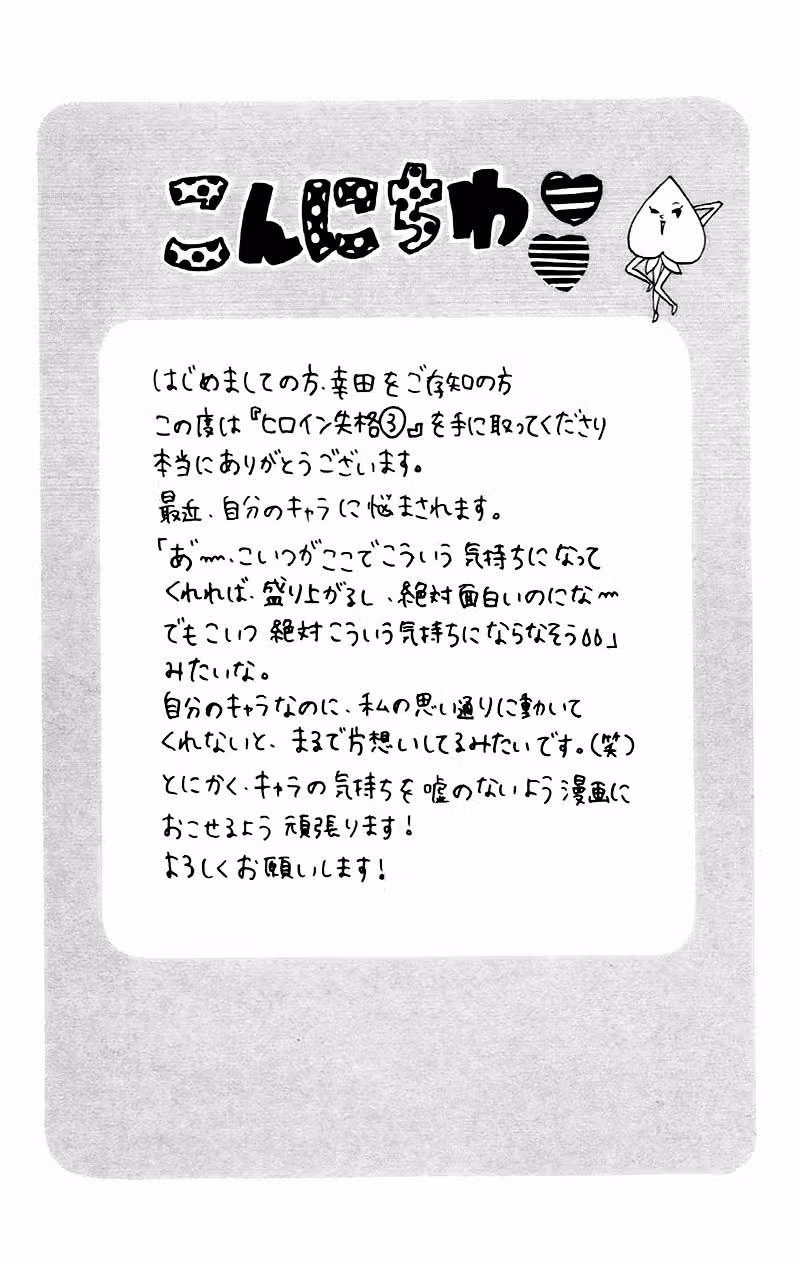 こんにちわ
はじめましての方、幸田をご存知の方
この度は『ヒロイン失格③』を手に取ってくださり
本当にありがとうございます。
最近、自分のキャラに悩まされます。
「あ゛〜〜、こいつがここでこういう気持ちになって
くれれば、盛り上がるし、絶対面白いのにな〜
でもこいつ絶対こういう気持ちにならなそう」
みたいな。
自分のキャラなのに、私の思い通りに動いて
くれないと、まるで片想いしてるみたいです。(笑)
とにかく、キャラの気持ちを嘘のないよう漫画に
おこせるよう頑張ります!
よろしくお願いします!